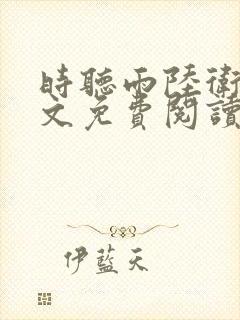 時聽雨陸衛
文免費閱讀
伊藍天